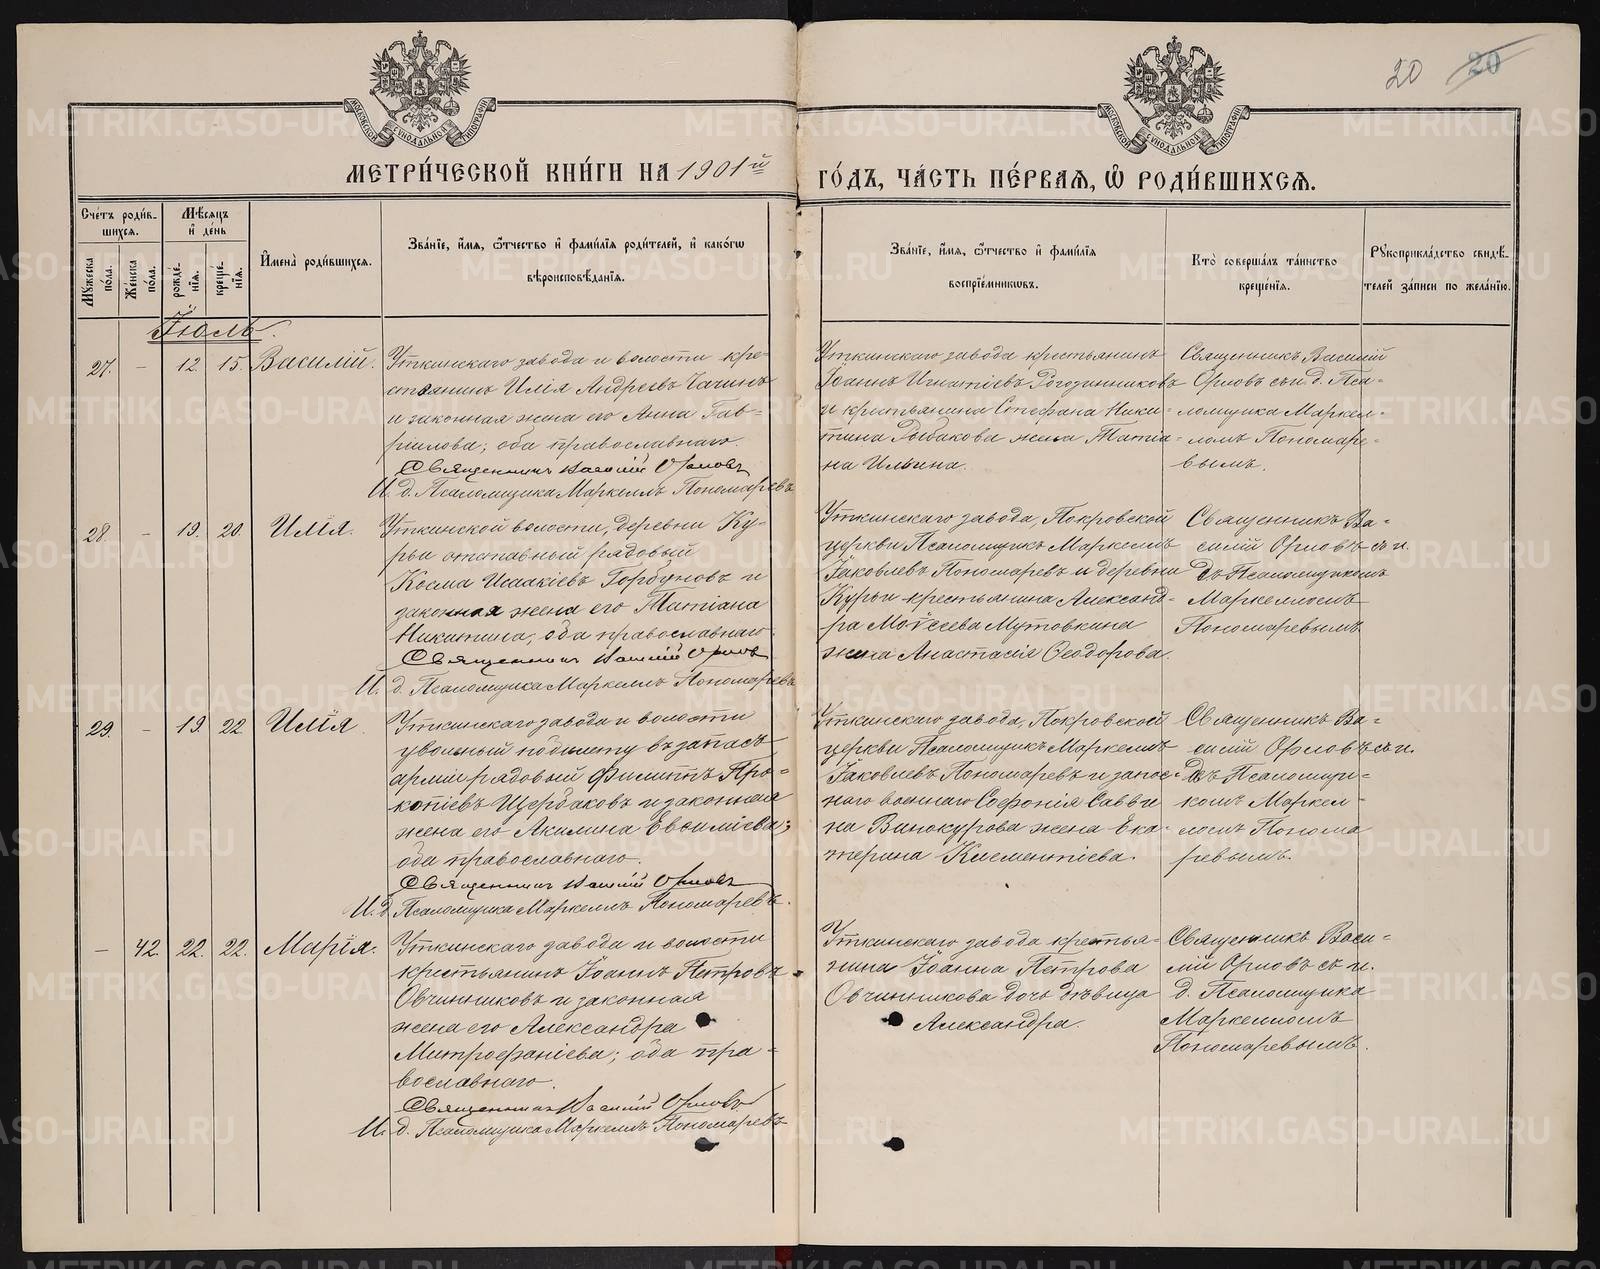 20 20
МЕТРИ́ЧЕСКОЙ КНИ́ГИ НА 1901й ГО́ДЪ, ЧА́СТЬ ПЕ́РВАѦ, Ѽ РОДИ́ВШИХСѦ.
Сче́тъ роди́вшихсѧ.
Мѣ́сѧцъ и҆ де́нь
Мꙋ́жеска по́ла.
Же́нска по́ла.
рожде́нїѧ.
креще́нїѧ.
И҆мена̀ роди́вшихсѧ.
Зва́нїе, и҆́мѧ, ѻ҆́тчество и҆ фами́лїѧ роди́телей, и҆ како́гѡ
вѣроисповѣ́данїѧ.
Зва́нїе, и҆́мѧ, ѻ҆́тчество и҆ фами́лїѧ
воспрїе́мникѡвъ.
Кто̀ соверша́лъ та́инство
креще́нїѧ.
Рꙋкоприкла́дство свидѣ́-
телей за́писи по жела́нїю.
Іюль.
27. – 12. 15. Василій.
Уткинскаго завода и волости кре-
стьянинъ Илія Андреевъ Чагинъ
и законная жена его Анна Гав-
ріилова; оба православнаго.
Священникъ Василій Орловъ
И. д. Псаломщика Маркеллъ Пономаревъ
Уткинскаго завода крестьянинъ
Іоаннъ Игнатіевъ Рогозинниковъ
и крестьянина Стефана Ники-
тина Рыбакова жена Татіа-
на Ильина.
Священникъ Василій
Орловъ съ и. д. Пса-
ломщика Маркел-
ломъ Пономаре-
вымъ.
28. – 19. 20. Илія.
Уткинской волости, деревни Ку-
рьи отставный рядовый
Косма Исаакіевъ Горбуновъ и
законная жена его Татіана
Никитина; оба православнаго
Священникъ Василій Орловъ
И. д. Псаломщика Маркеллъ Пономаревъ
Уткинскаго завода, Покровской
церкви Псаломщикъ Маркеллъ
Іаковлевъ Пономаревъ и деревни
Курьи крестьянина Александ-
ра Моѵсеева Мутовкина
жена Анастасія Ѳеодорова.
Священникъ Ва-
силій Орловъ съ и.
д. Псаломщикомъ
Маркелломъ
Пономаревымъ
29. – 19. 22. Илія.
Уткинскаго завода и волости
увольный по билету въ запасъ
арміи рядовый Филиппъ Про-
копіевъ Щербаковъ и законная
жена его Акилина Евѳиміева;
оба православнаго.
Священникъ Василій Орловъ
И. д. Псаломщика Маркеллъ Пономаревъ.
Уткинскаго завода, Покровской
церкви Псаломщикъ Маркеллъ
Іаковлевъ Пономаревъ и запас-
наго военнаго Софонія Савви-
на Винокурова жена Ека-
терина Климентіева.
Священникъ Ва-
силій Орловъ съ и.
д. Псаломщи-
комъ Маркел-
ломъ Понома
ревымъ.
– 42. 22. 22. Марія.
Уткинскаго завода и волости
крестьянинъ Іоаннъ Петровъ
Овчинниковъ и законная
жена его Александра
Митрофаніева; оба пра-
вославнаго.
Священникъ Василій Орловъ
И. д. Псаломщика Маркеллъ Пономаревъ
Уткинскаго завода крестья-
нина Іоанна Петрова
Овчинникова дочь дѣвица
Александра.
Священникъ Васи-
лій Орловъ съ и.
д. Псаломщика
Маркелломъ
Пономаревымъ.